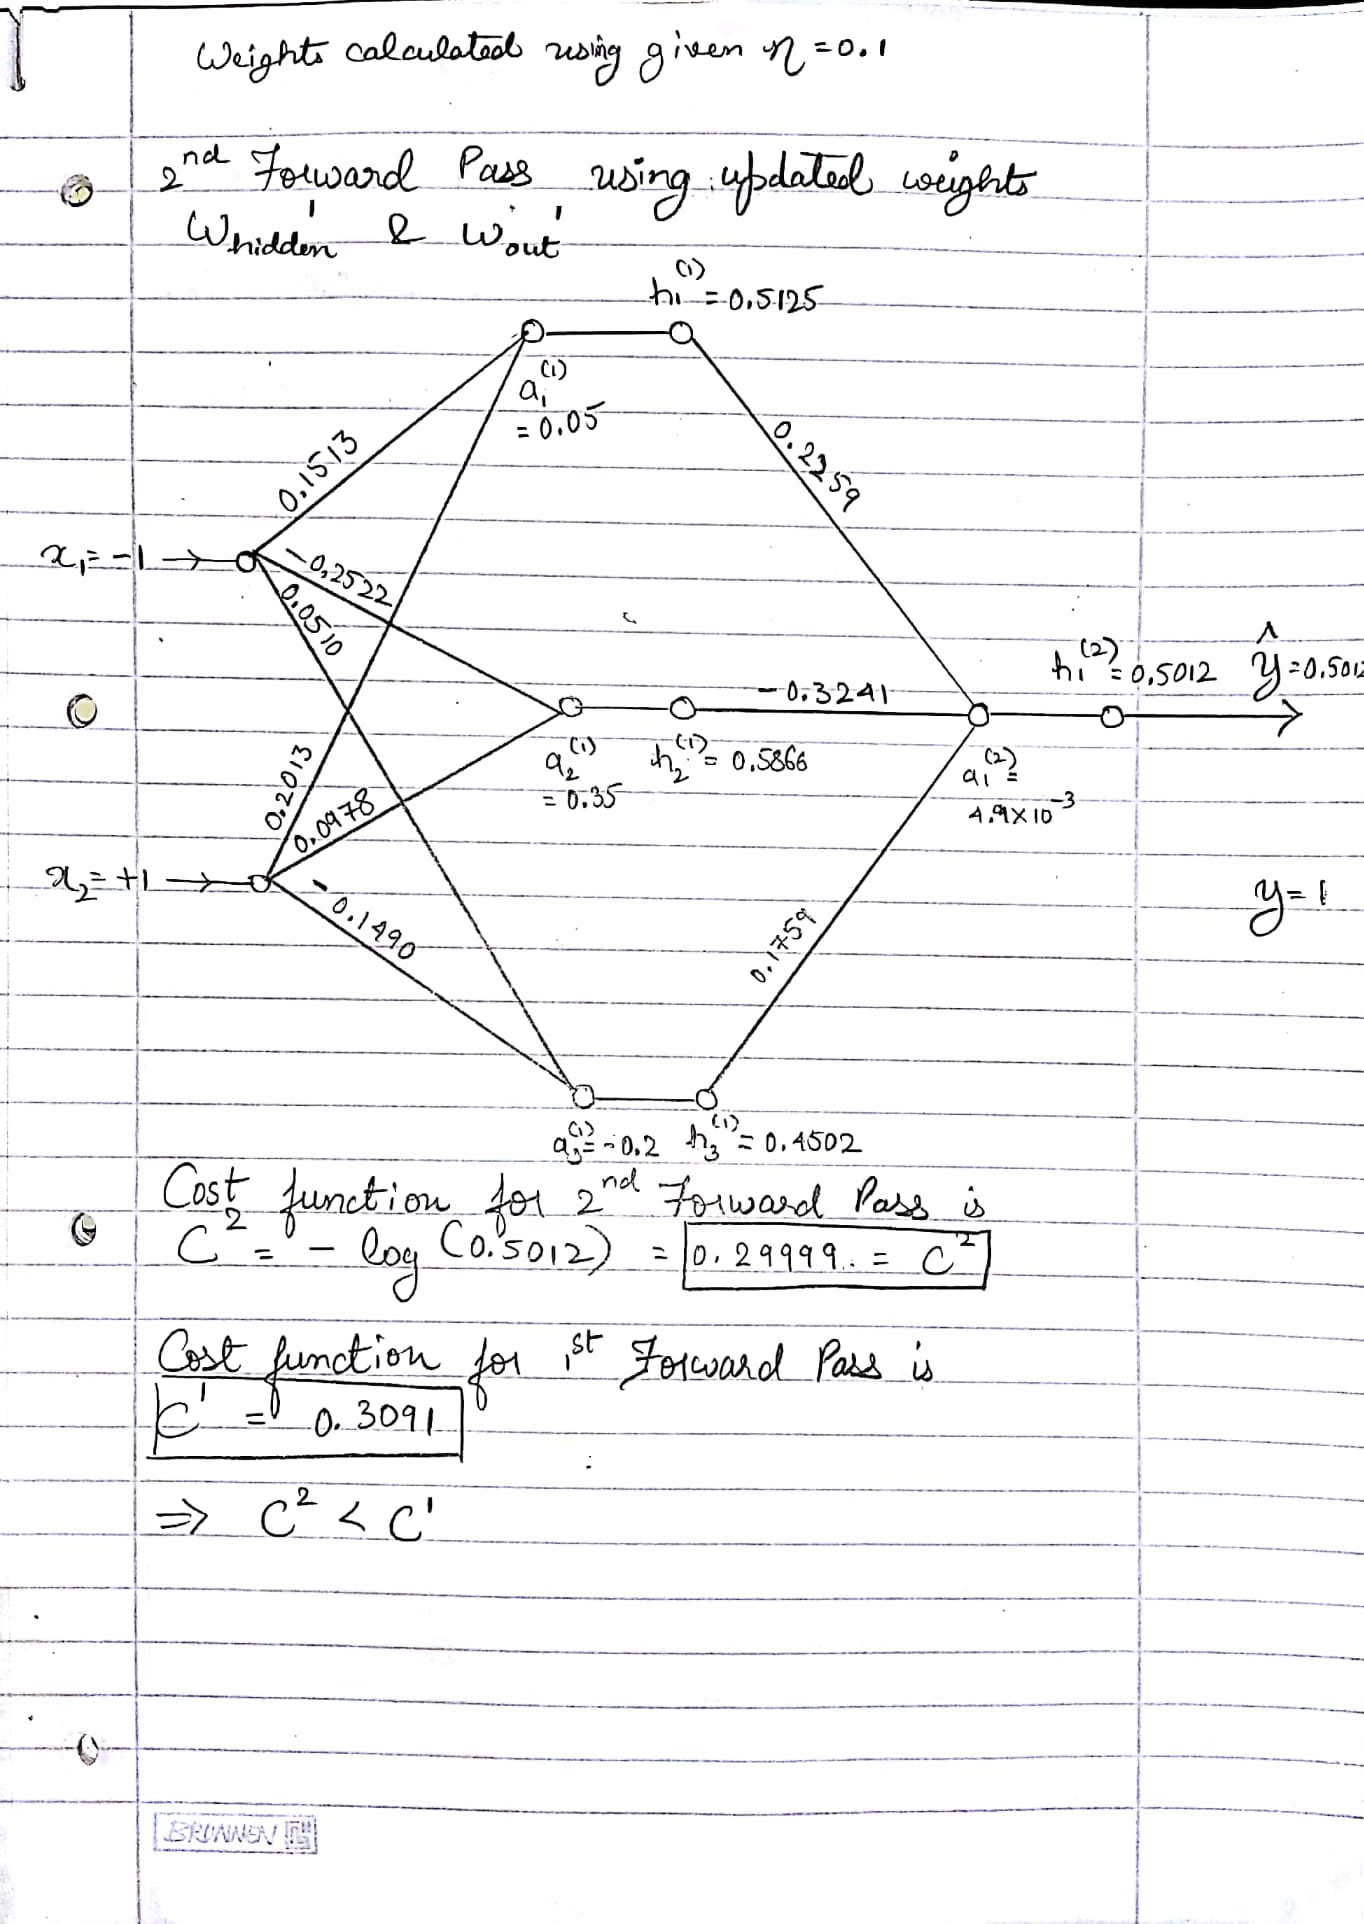 Weights calculated using given η = 0.1
2nd Forward Pass using updated weights
W'hidden & W'out
h₁⁽¹⁾ = 0.5125
a₁⁽¹⁾
= 0.05
0.1513
0.2259
x₁ = -1
-0.2522
0.0510
h₁⁽²⁾ = 0.5012 ŷ = 0.5012
-0.3241
a₂⁽¹⁾ h₂⁽¹⁾ = 0.5866
= 0.35
a₁⁽²⁾ =
4.9 x 10⁻³
0.2013
0.0978
x₂ = +1
-0.1490
y = 1
0.1759
a₃⁽¹⁾ = -0.2 h₃⁽¹⁾ = 0.4502
Cost function for 2nd Forward Pass is
C² = - log (0.5012) = 0.29999.. = C²
Cost function for 1st Forward Pass is
C¹ = 0.3091
⇒ C² < C¹
BRUNNEN